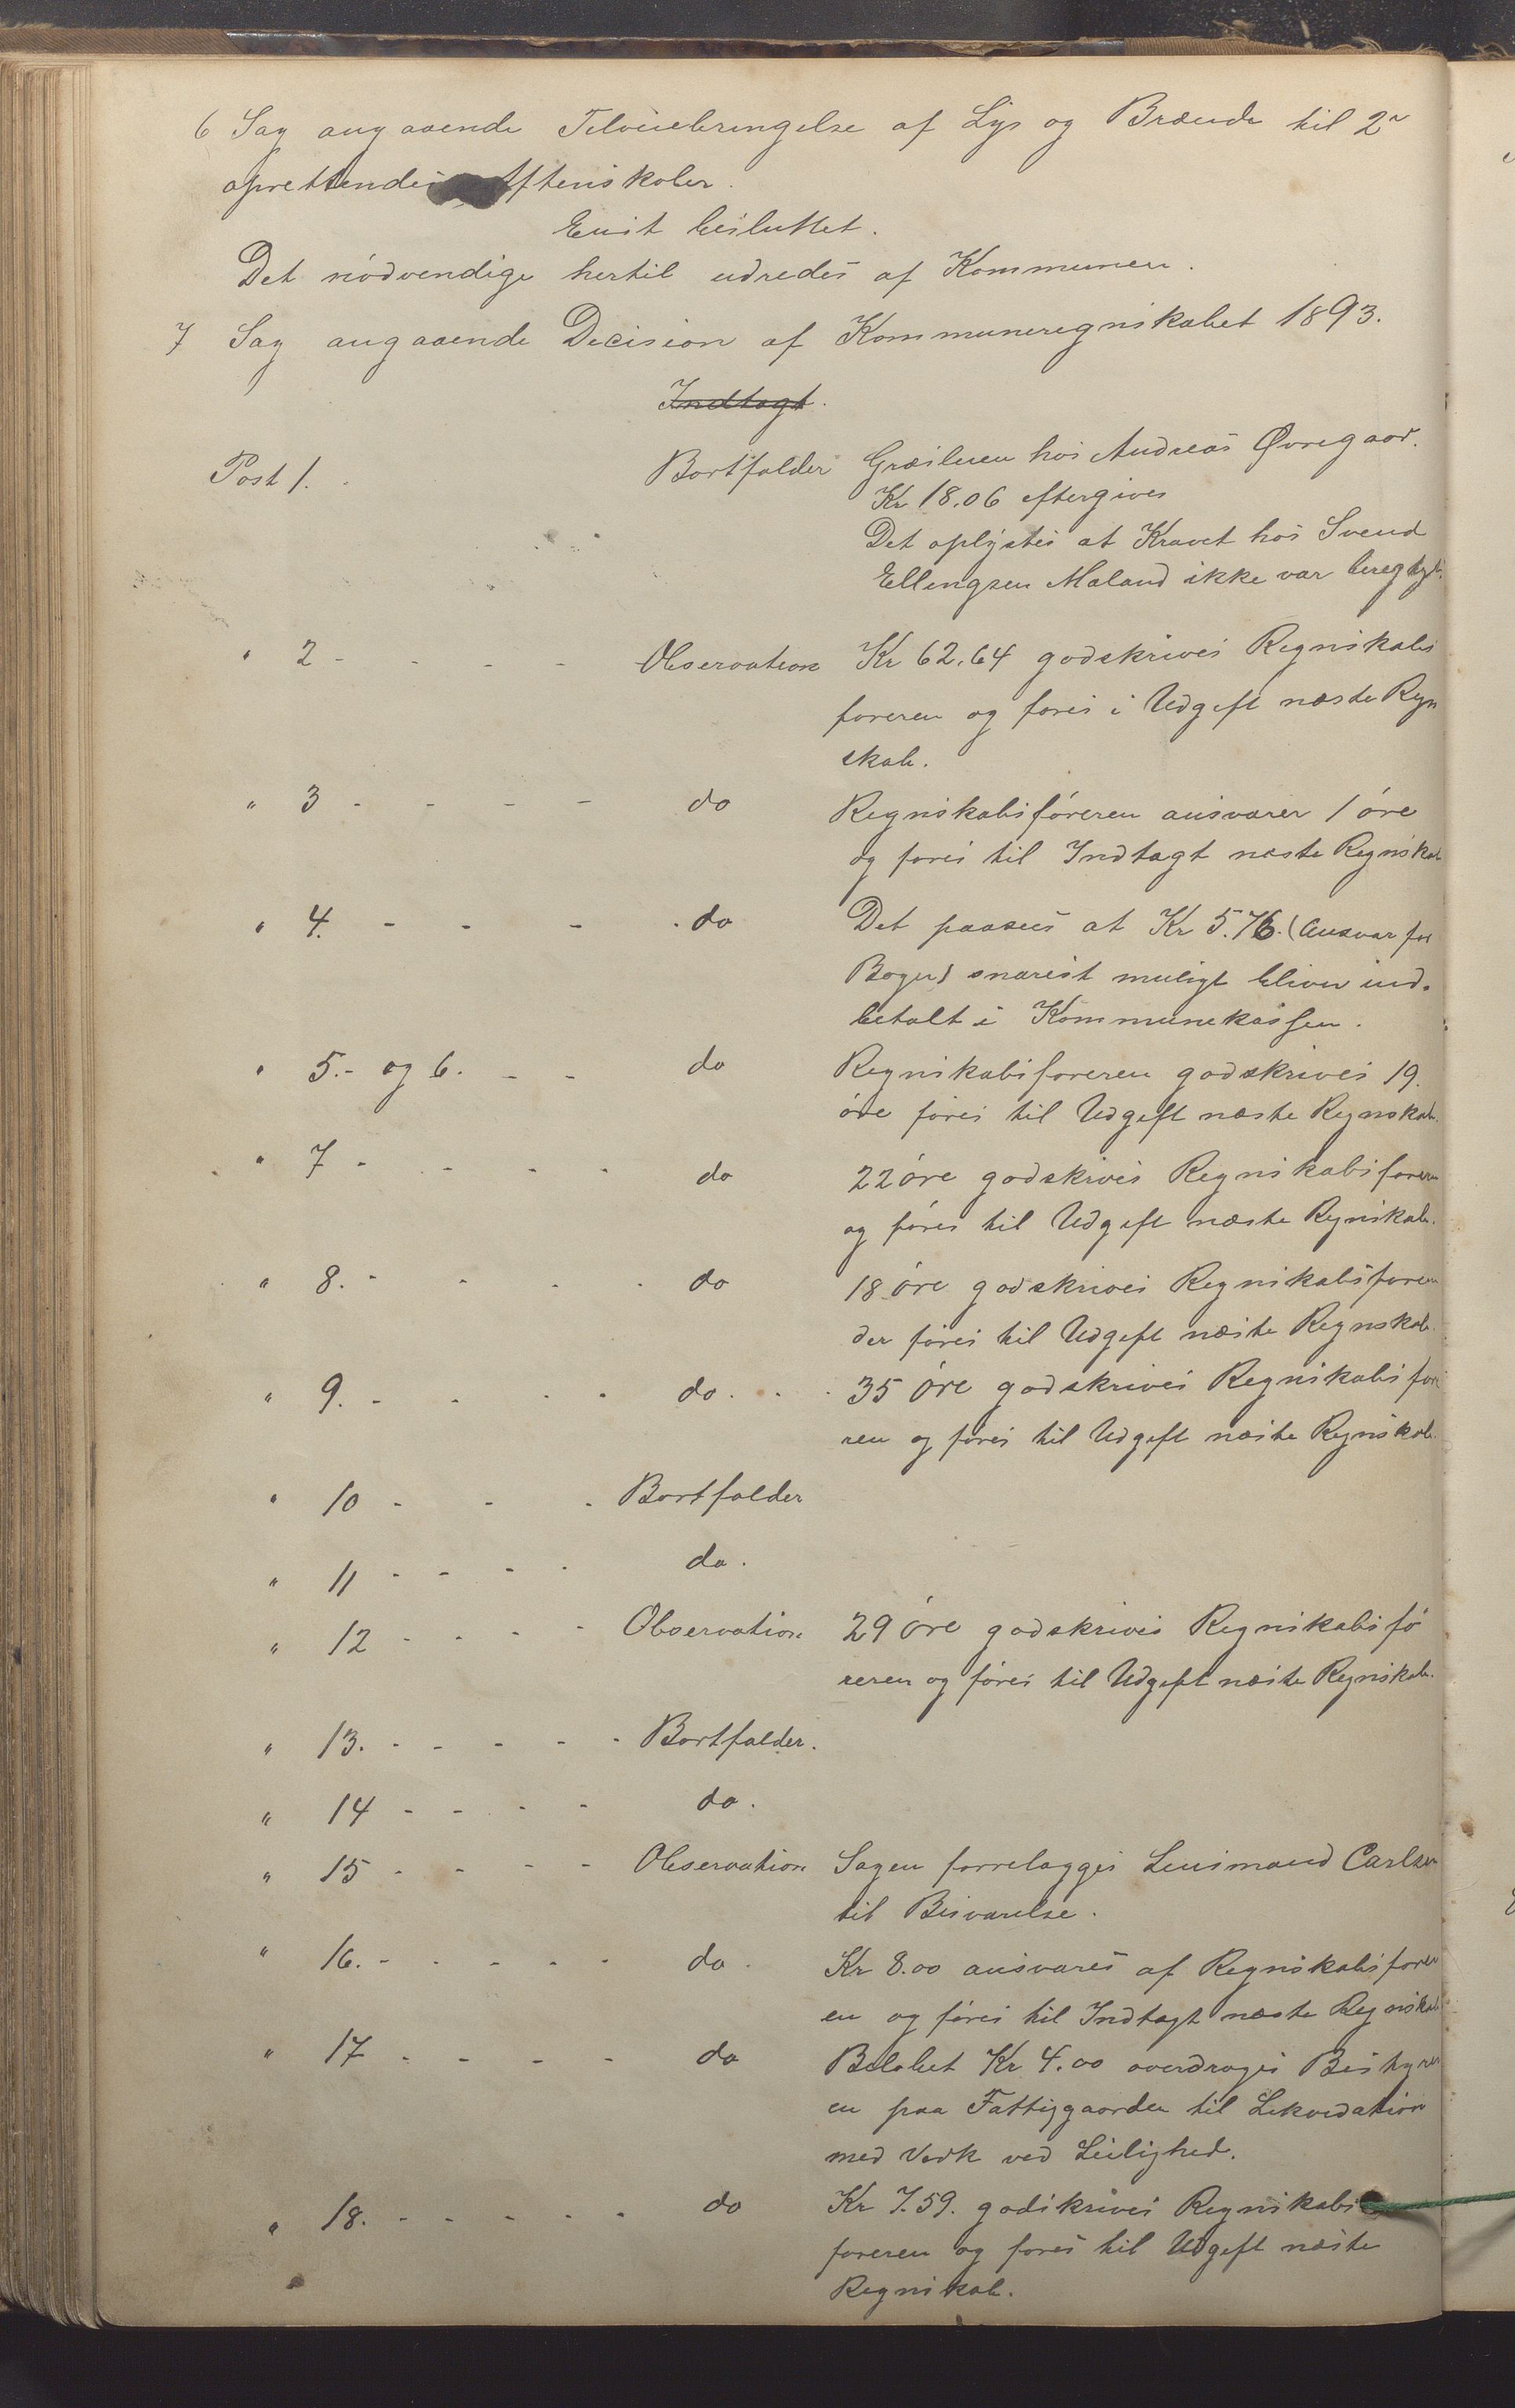 6 Sag angaaende Tilveiebringelse af Lys og Brænde til 2de
oprettendes Aftenskoler.
Enst besluttet.
Det nödvendige hertil udredes af Kommunen.
7 Sag angaaende Decision af Kommuneregnskabet 1893.
Indtægt.
Post 1. Bortfalder Græsleien hos Andreas Øvregaar.
Kr 18.06 eftergives
Det oplystes at Kravet hos Svend
Ellingsen Maland ikke var beregtyt.
" 2 - - - - Observation Kr 62.64 godskrives Regnskabs
foreren og fores i Udgift næste Regn
skab.
" 3 - - - - do Regnskabsföreren ansvarer 1 öre
og fores til Indtægt næste Regnskab
" 4. - - - - do Det paasees at Kr 5.76. (Ansvar for
Boger) snarest muligt bliver ind-
betalt i Kommunekassen.
" 5.- og 6. - - do Regnskabsforeren godskrives 19.
öre föres til Udgift næste Regnskab.
" 7 - - - - do 22 öre godskrives Regnskabsforeren
og föres til Udgift næste Regnskab.
" 8. - - - - do 18 öre godskrives Regnskabsforeren
der föres til Udgift næste Regnskab.
" 9. - - - - do. - - 35 öre godskrives Regnskabsfore
ren og föres til Udgift næste Regnskab.
" 10 - - - Bortfalder
" 11 - - - - do.
" 12 - - - - Observation 29 öre godskrives Regnskabsfö
reren og föres til Udgift næste Regnskab.
" 13. - - - - - Bortfalder.
" 14 - - - - do.
" 15 - - - - Observation Sagen forrelægges Lensmand Carlsen
til Besvarelse.
" 16. - - - - - do. Kr 8.00 ansvares af Regnskabsforer
en og föres til Indtægt næste Regnskab
" 17 - - - - do Belobet Kr 4.00 overdrages Bestyrer
en paa Fattiggaarden til Lekvedation
med Vedk ved Leilighed.
" 18. - - - - - do Kr 7.59. godskrives Regnskabs
foreren og fores til Udgift næste
Regnskab.